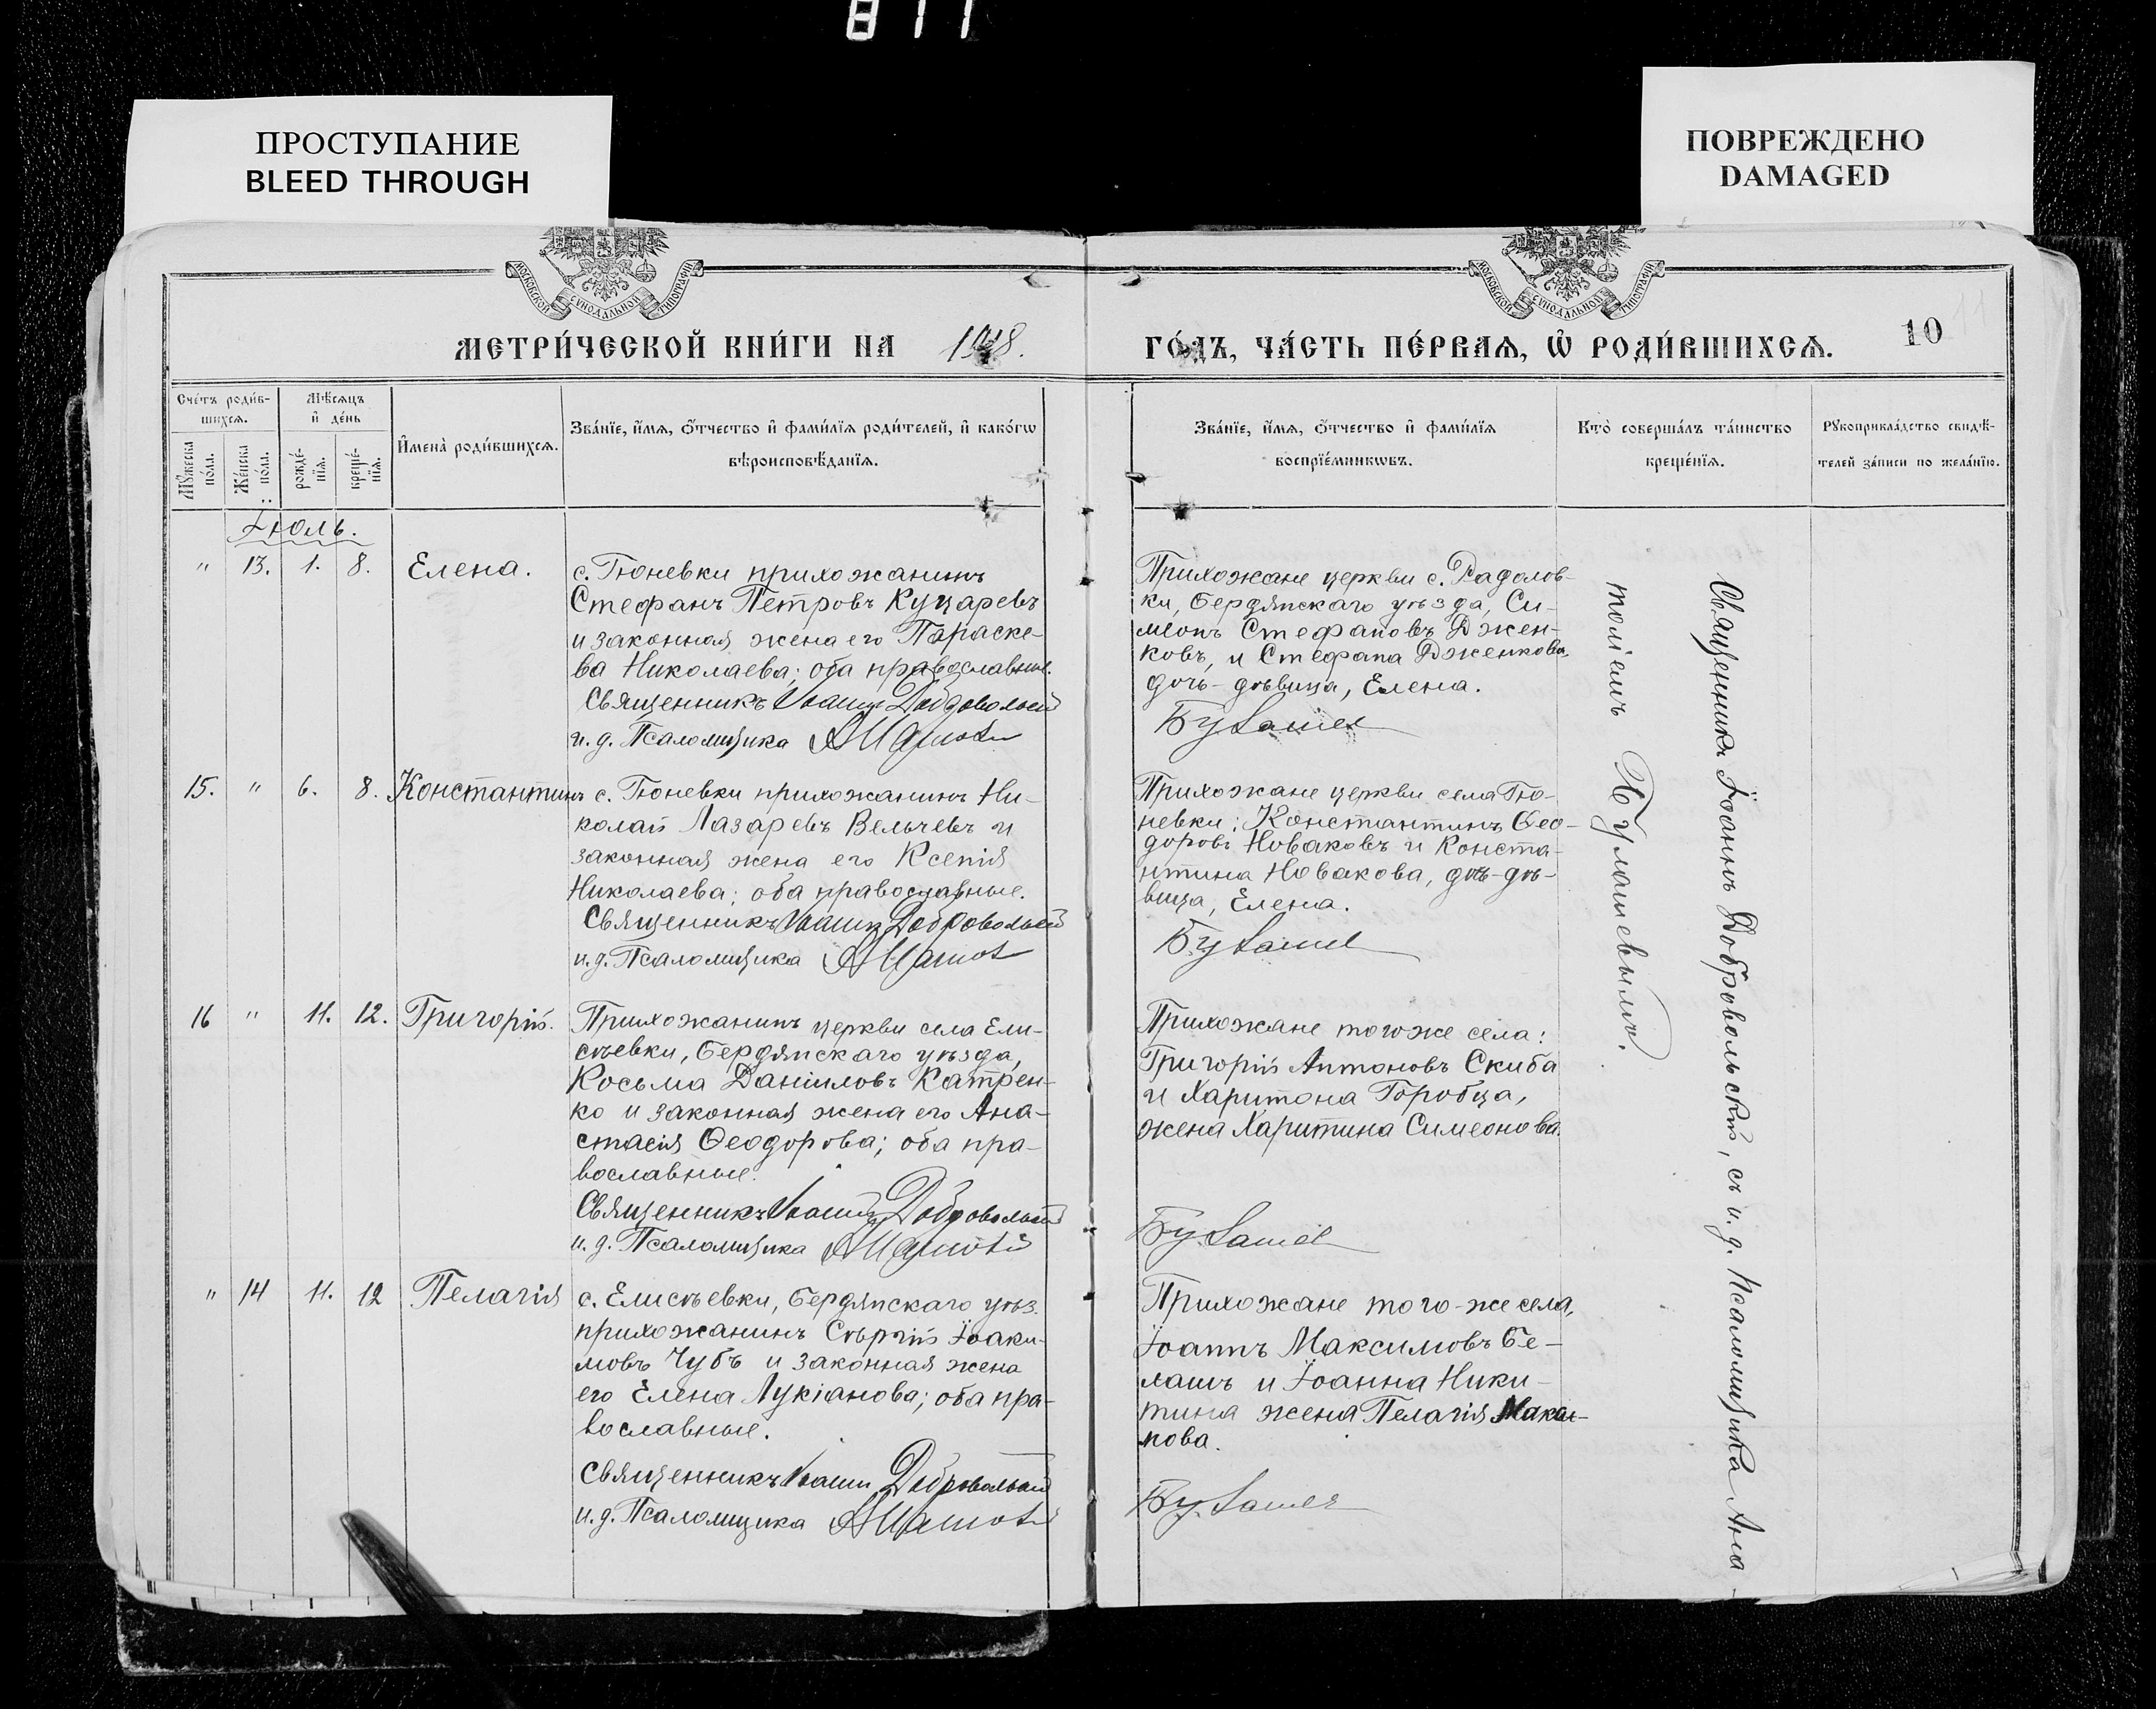 811
ПРОСТУПАНИЕ
BLEED THROUGH
ПОВРЕЖДЕНО
DAMAGED
МОСКОВСКОЙ СѴНОДАЛЬНОЙ ТИПОГРАФІИ
МОСКОВСКОЙ СѴНОДАЛЬНОЙ ТИПОГРАФІИ
МЕТРИ́ЧЕСКОЙ КНИ́ГИ НА 1918.
ГО́ДЪ, ЧА́СТЬ ПЕ́РВАѦ, Ѽ РОДИ́ВШИХСѦ.
10
Сче́тъ роди́в-
шихсѧ.
Мꙋ́жеска по́ла.
Же́нска по́ла.
Мѣ́сѧцъ
и҆ де́нь
рожде́-
нїѧ.
креще́-
нїѧ.
И҆мена̀ роди́вшихсѧ.
Зва́нїе, и҆́мѧ, ѻ҆́тчество и҆ фами́лїѧ роди́телей, и҆ како́гѡ
вѣроисповѣ́данїѧ.
Зва́нїе, и҆́мѧ, ѻ҆́тчество и҆ фами́лїѧ
воспрїе́мникѡвъ.
Кто̀ соверша́лъ та́инство
креще́нїѧ.
Рꙋкоприкла́дство свидѣ́-
телей за́писи по жела́нїю.
Іюль.
" 13. 1. 8. Елена.
с. Гюневки прихожанинъ
Стефанъ Петровъ Куцаревъ
и законная жена его Параске-
ва Николаева; оба православные.
Священникъ Іоаннъ Добровольскій
и. д. Псаломщика
Прихожане церкви с. Радолов-
ки, Бердянскаго уѣзда, Си-
меонъ Стефановъ Джен-
ковъ, и Стефана Дженкова,
дочь-дѣвица, Елена.
15. " 6. 8. Константинъ
с. Гюневки прихожанинъ Ни-
колай Лазаревъ Вельчевъ и
законная жена его Ксенія
Николаева; оба православные.
Священникъ Іоаннъ Добровольскій
и. д. Псаломщика
Прихожане церкви села Гю-
невки: Константинъ Ѳео-
доровъ Новаковъ и Конста-
нтина Новакова, дочь-дѣ-
вица, Елена.
16 " 11. 12. Григорій.
Прихожанинъ церкви села Ели-
сѣевки, Бердянскаго уѣзда,
Косьма Даниловъ Катрен-
ко и законная жена его Ана-
стасія Ѳеодорова; оба пра-
вославные.
Священникъ Іоаннъ Добровольскій
и. д. Псаломщика
Прихожане того же села:
Григорій Антоновъ Скиба
и Харитона Горобца,
жена Харитина Симеонова.
" 14 11. 12 Пелагія
с. Елисѣевки, Бердянскаго уѣз.
прихожанинъ Сергій Іоаки-
мовъ Чубъ и законная жена
его Елена Лукіанова; оба пра-
вославные.
Священникъ Іоаннъ Добровольскій
и. д. Псаломщика
Прихожане того-же села,
Іоаннъ Максимовъ Бе-
лашъ и Іоанна Ники-
тина жена Пелагія Мака-
нова.
Священникъ Іоаннъ Добровольскій, съ и. д. Псаломщика Ана-
толіемъ Булашевымъ.